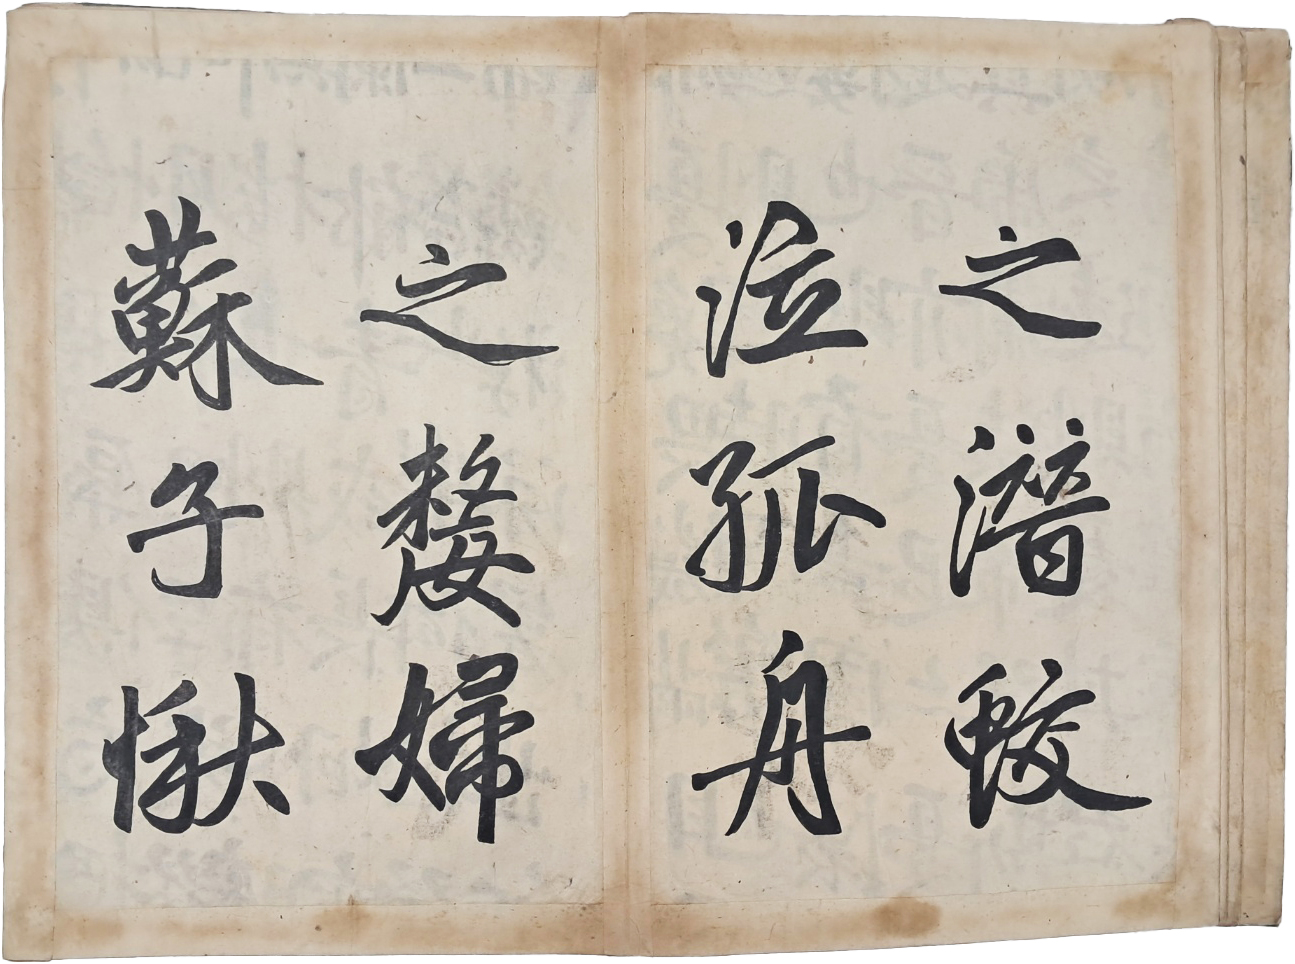 之潛蛟
泣孤舟
之嫠婦
蘇子愀